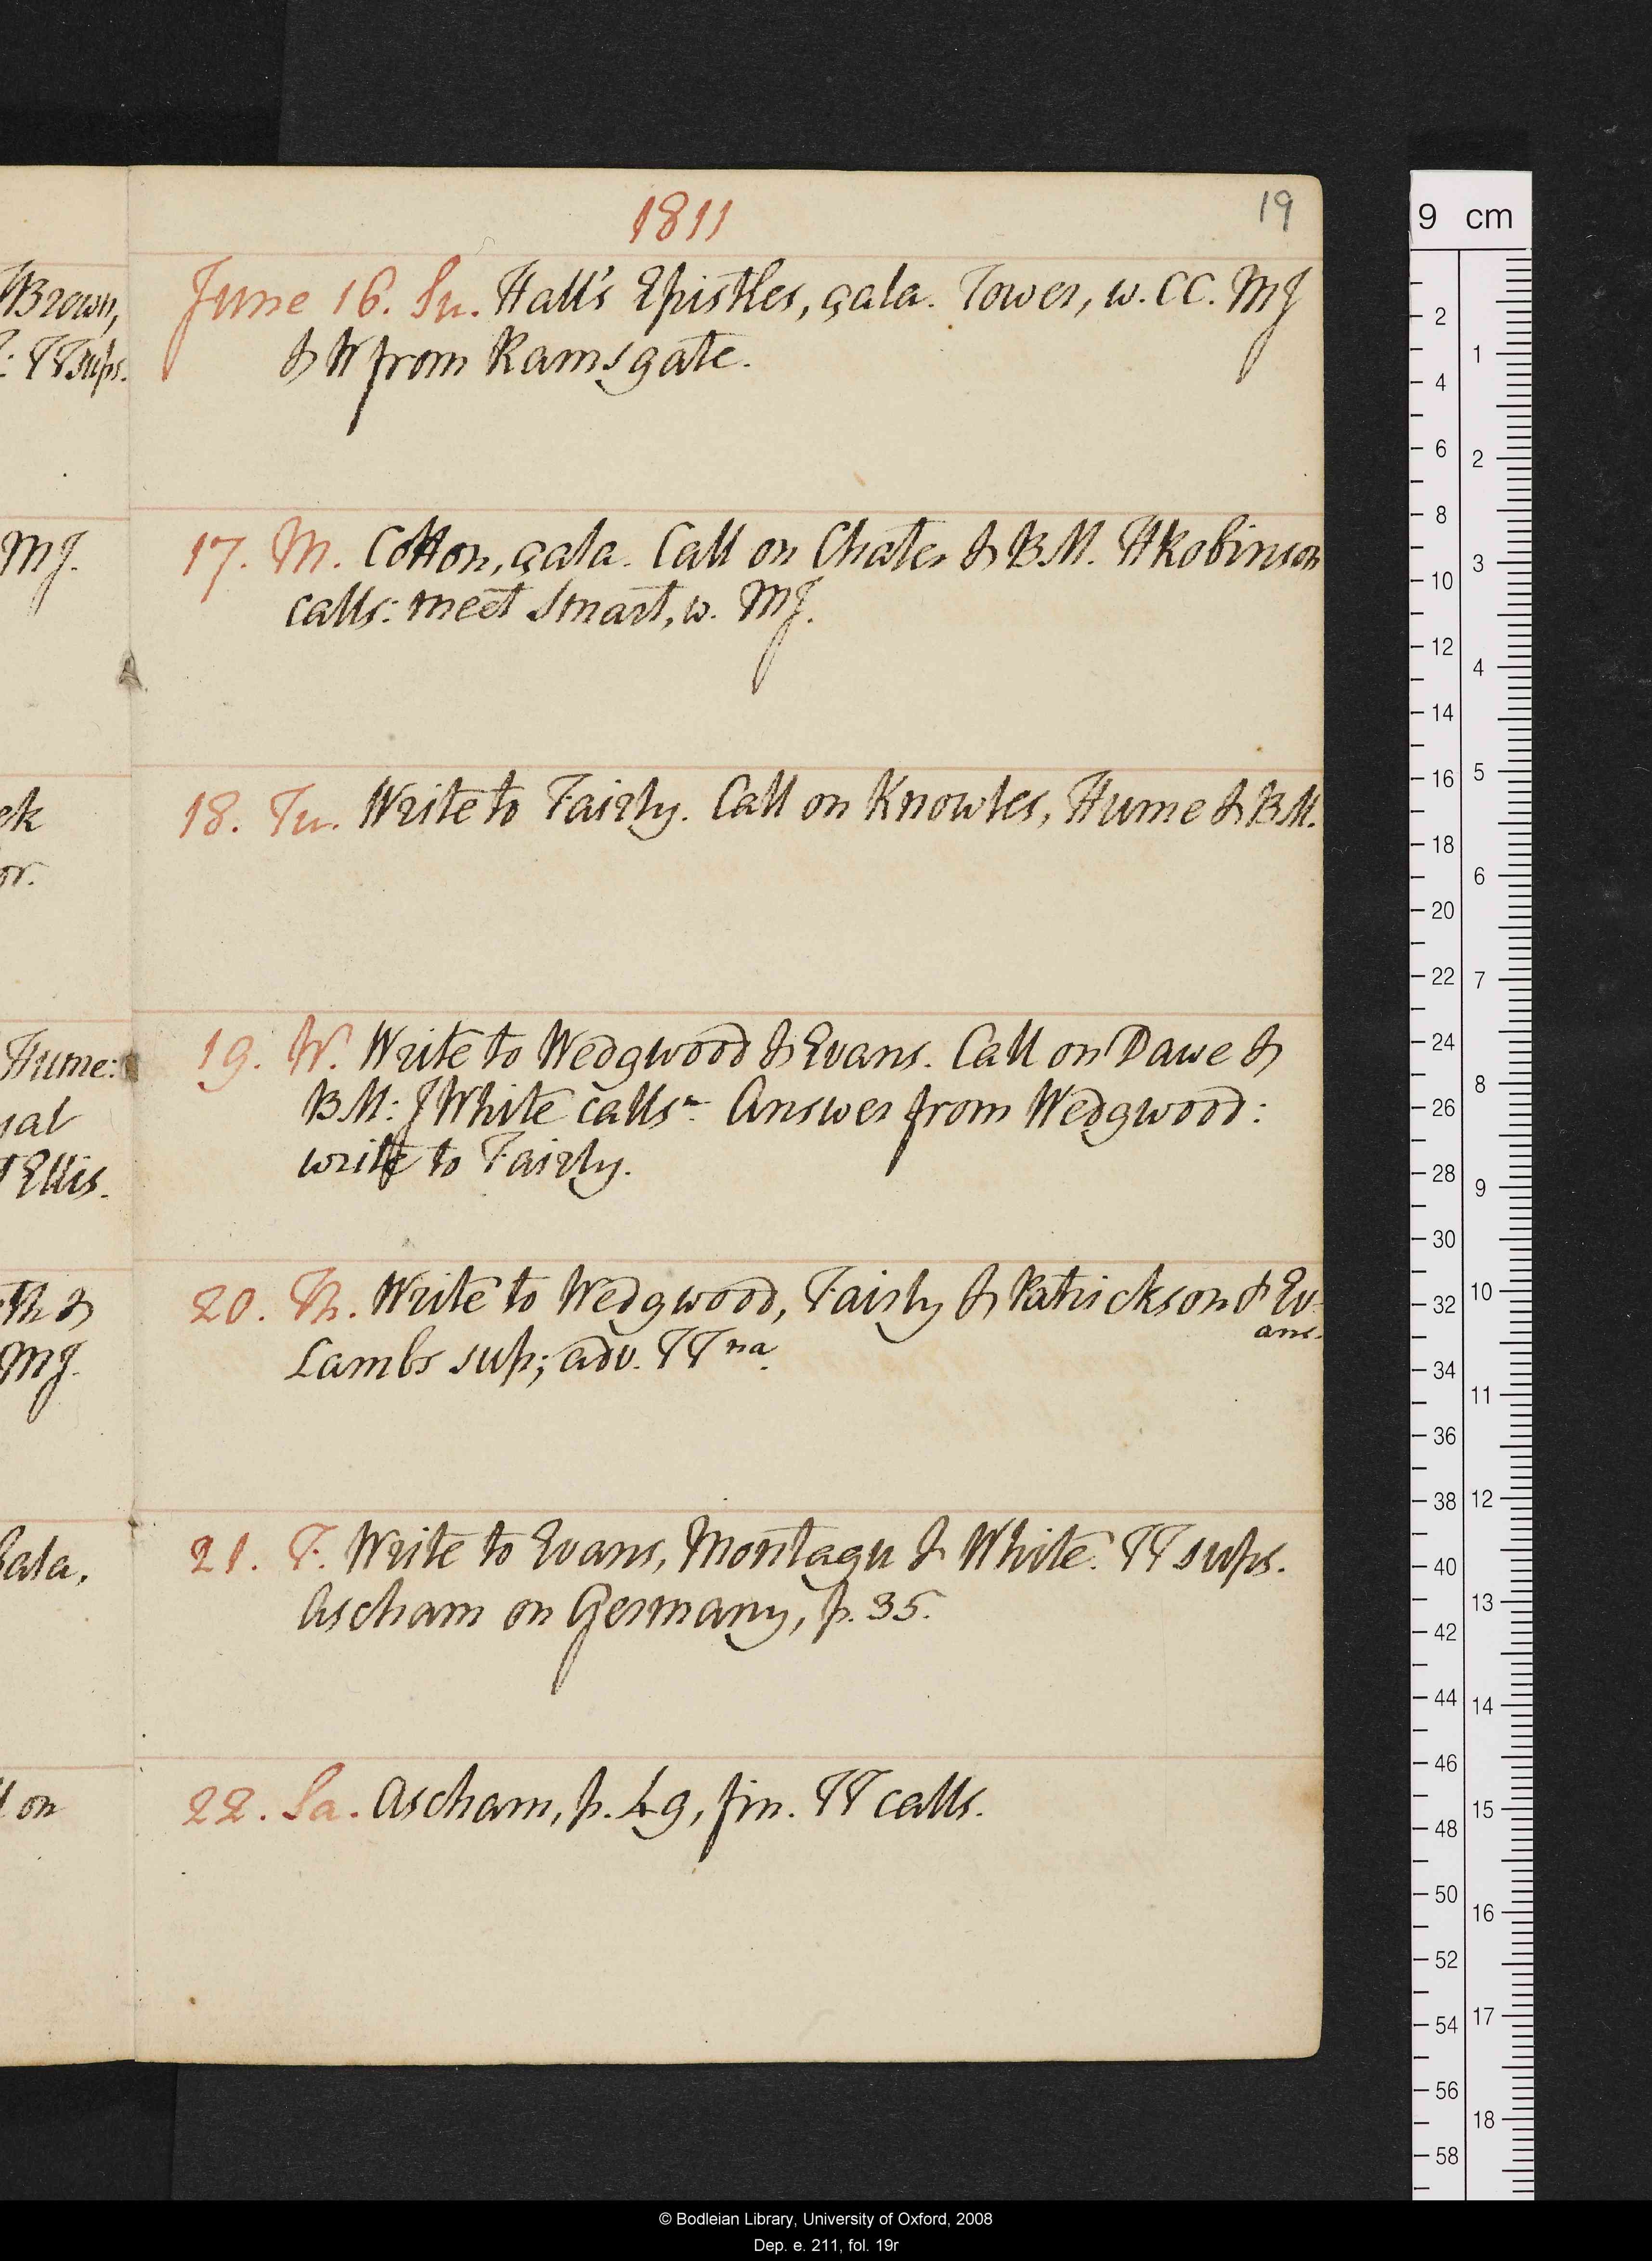 1811
19
June 16. Su. Hall's Epistles, çala. Tower, w. CC. MJ
& W from Ramsgate.
17. M. Cotton, çala. Call on Chater & BM. HRobinson
calls: meet Smart, w. MJ.
18. Tu. Write to Fairly. Call on Knowles, Hume & BM.
19. W. Write to Wedgwood & Evans. Call on Dawe &
BM: JWhite calls n. Answer from Wedgwood:
write to Fairly.
20. Th. Write to Wedgwood, Fairly & Patrickson & Ev-
ans.
Lambs sup; adv. TT na.
21. F. Write to Evans, Montagu & White. TT sups.
Ascham on Germany, p. 35.
22. Sa. Ascham, p. 49, fin. TT calls.
Brown,
TT sups.
MJ.
Hume:
Ellis.
Th &
MJ.
çala,
on
9 cm
2
4
6
8
10
12
14
16
18
20
22
24
26
28
30
32
34
36
38
40
42
44
46
48
50
52
54
56
58
1
2
3
4
5
6
7
8
9
10
11
12
13
14
15
16
17
18
© Bodleian Library, University of Oxford, 2008
Dep. e. 211, fol. 19r